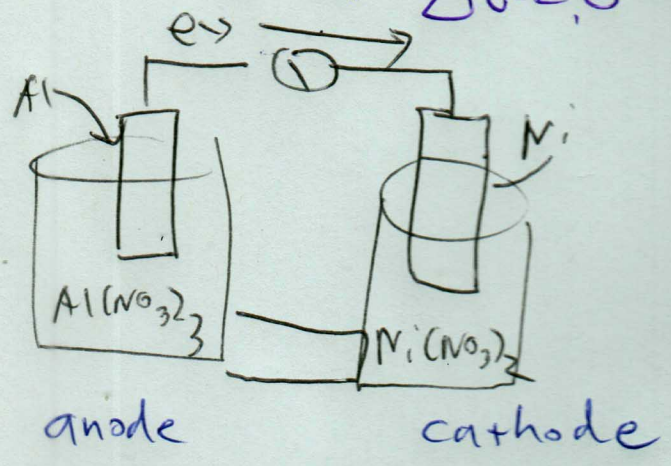 e->
Al
Ni
Al(NO3)3
Ni(NO3)2
anode
cathode